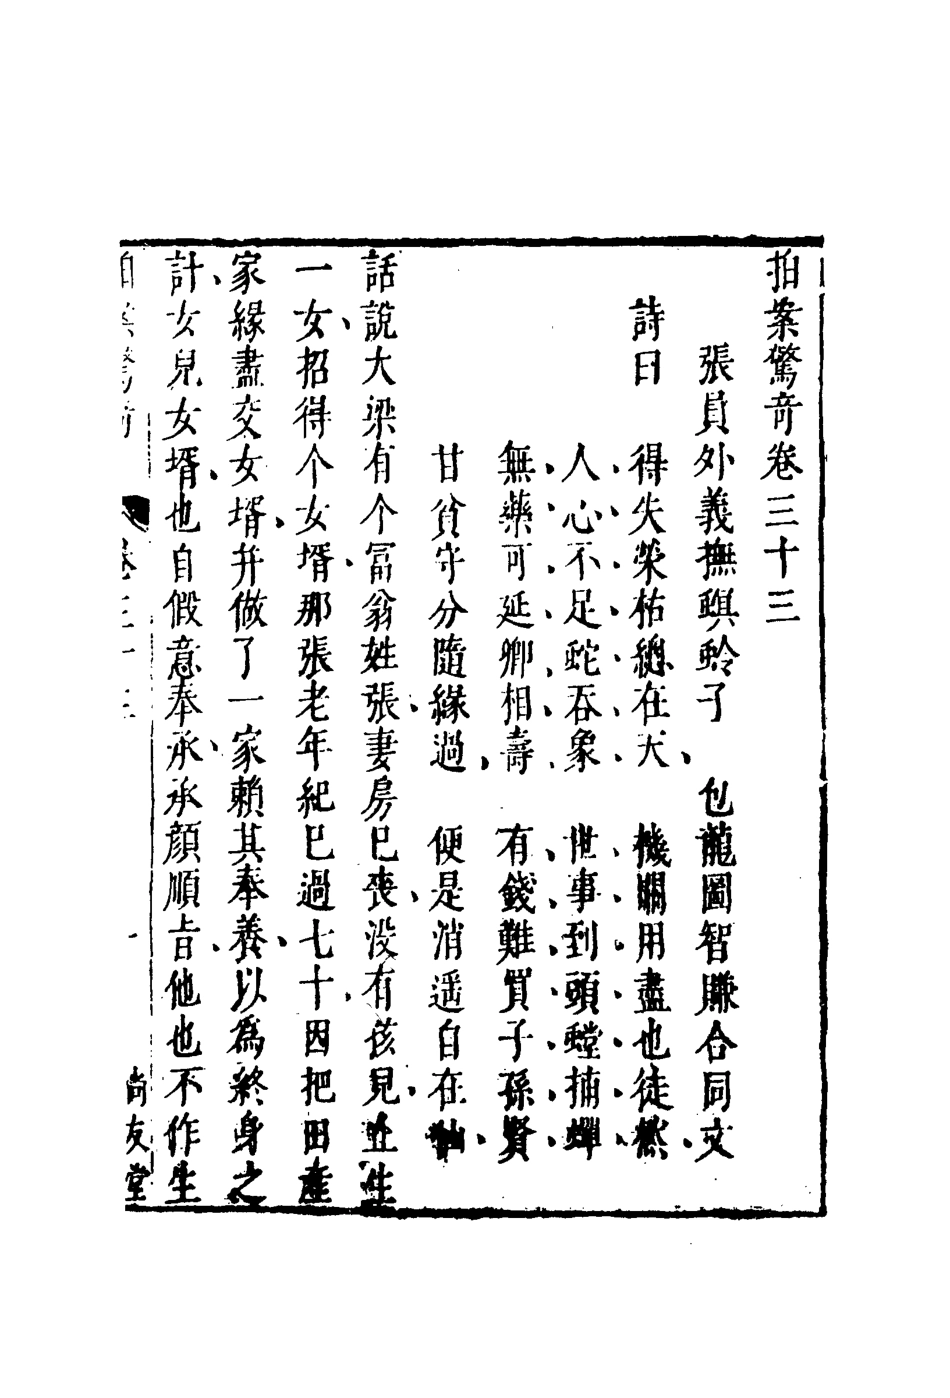 拍案驚奇卷三十三
張員外義撫螟蛉子　包龍圖智賺合同文
詩曰
得失榮枯總在天　機關用盡也徒然
人心不足蛇吞象　世事到頭螳捕蟬
無藥可延卿相壽　有錢難買子孫賢
甘貧守分隨緣過　便是消遥自在仙
話說大梁有个冨翁姓張妻房已喪没有孩兒止生
一女招得个女壻那張老年紀已過七十因把田産
家緣盡交女壻并做了一家賴其奉養以爲終身之
計女兒女壻也自假意奉承承顔順旨他也不作生
拍案驚奇　卷三十三　一　尚友堂